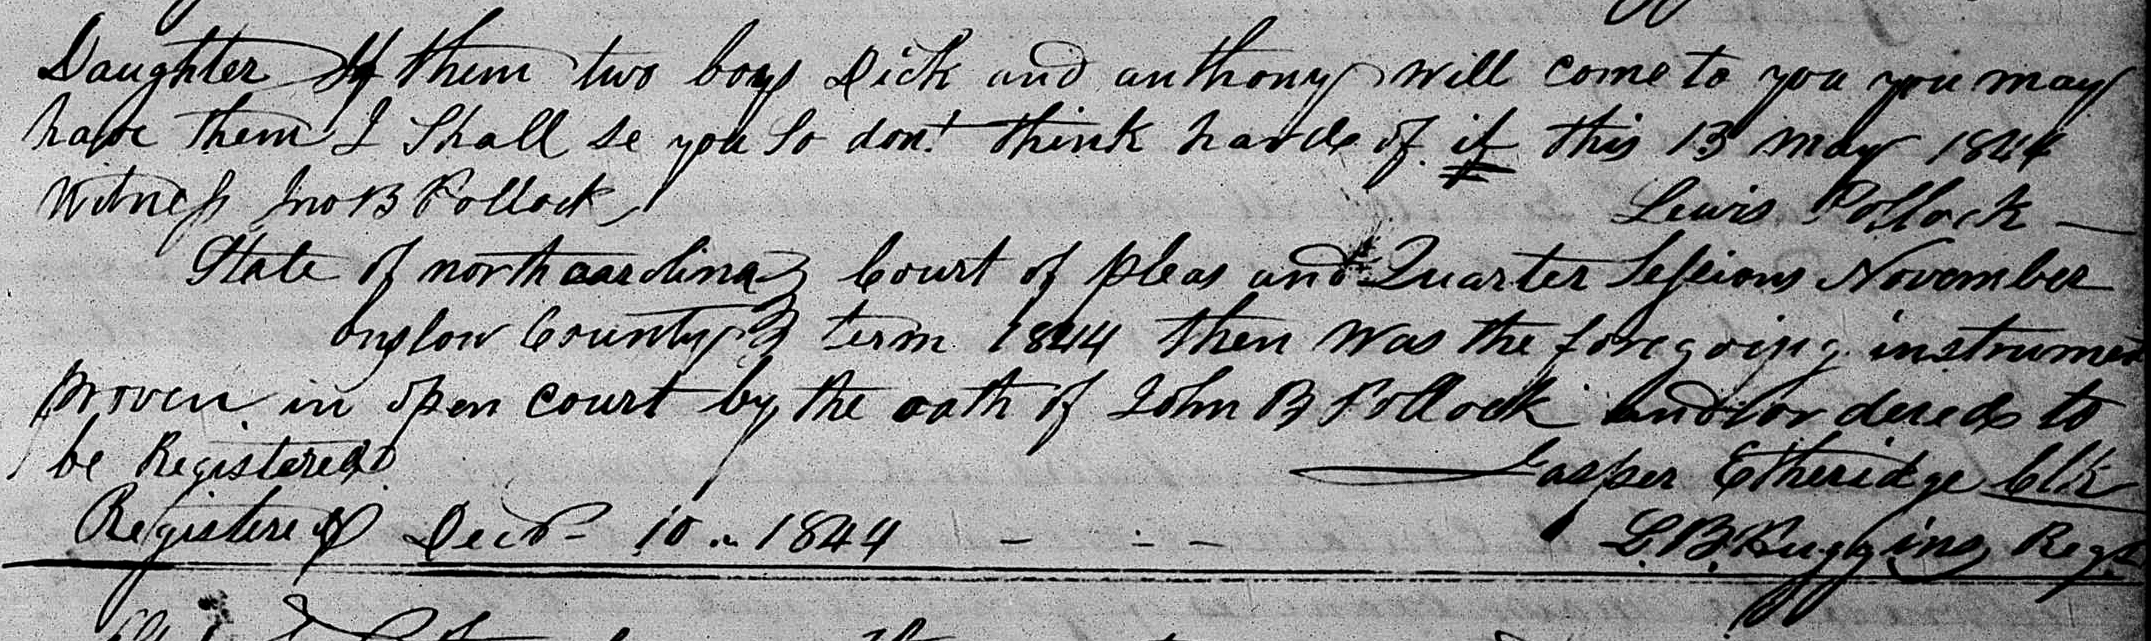 Daughter If them two boys Dick and anthony will come to you you may
have them I Shall se you So don't think hard of it this 13 may 1844
Witness Jno B Pollock
Lewis Pollock
State of north carolina } Court of pleas and Quarter Sessions November
onslow County } term 1844 then was the foregoing instrument
proven in open court by the oath of John B Pollock and ordered to
be Registered
Jasper Etheridge Clk
Registered Decr 10 1844 - - -
L. B. Huggins Regr